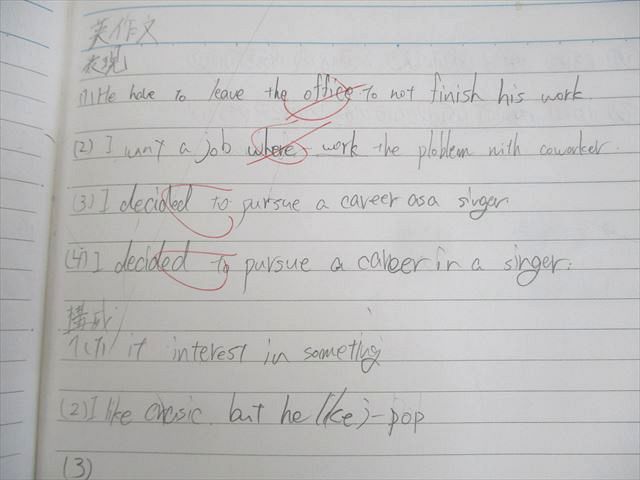 英作文
表現
(1) He have to leave the office to not finish his work.
(2) I want a job where work the ploblem with coworker.
(3) I decided to pursue a career as a singer.
(4) I decided to pursue a career in a singer.
構成
(1) it interest in someting
(2) I like crasic. but he like J-pop
(3)